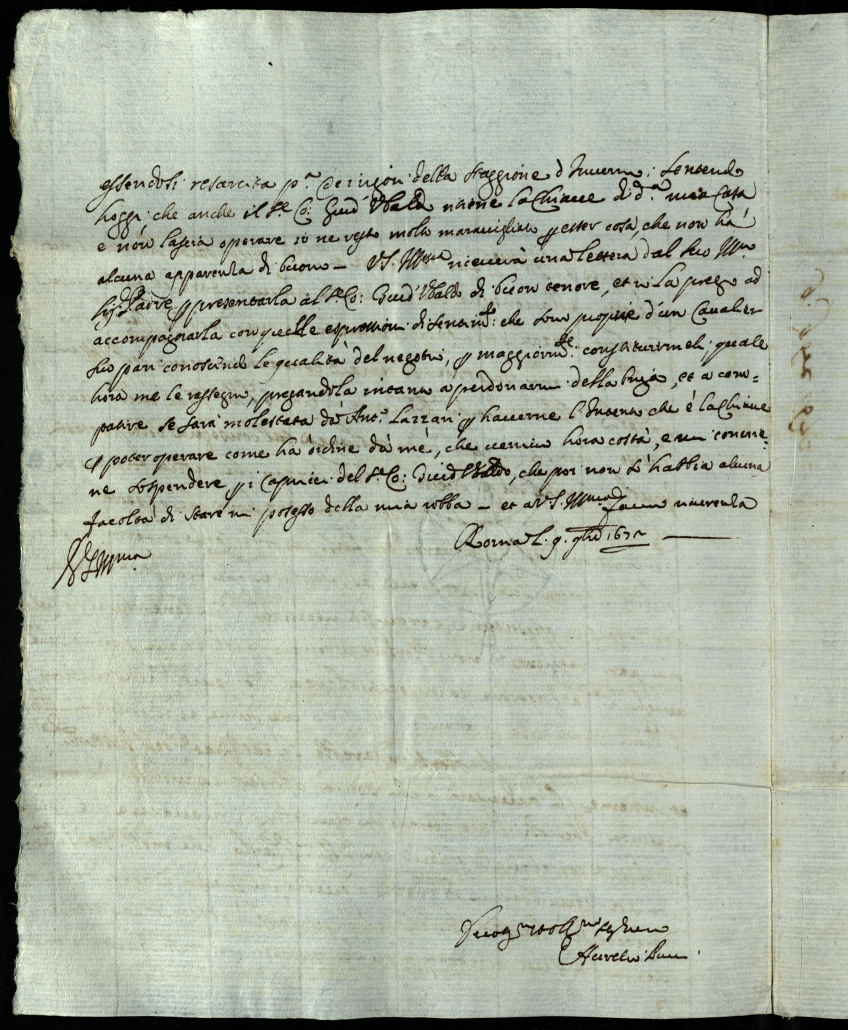 essendosi resarcita p.ª de i rigori della staggione d'Inverno: sentendo
hoggi che anche il S.r Co: Guid'Ubaldo ritiene la Chiave di d.ª mia Casa
e non lascia operare io ne resto molto maravigliato p esser cosa, che non há
alcuna apparenza di buono – V.S. Ill.ma riceverà una lettera dal suo Ill.mo
Sig.r Padre p presentarla al S.r Co: Guid'Ubaldo di buon tenore, et io la prego ad
accompagnarla con quelle espressioni di sentim.ti che sono proprie d'un Cavalier
suo pari conoscendo le qualità del negotio, p maggiorm.te constituirmeli quale
hora me le rassegno, pregandola intanto a perdonarmi della briga, et a com=
patire se sarà molestata dà Ant.º Lazzari p haverne l'Intento che è la Chiave
p poter operare come ha ordine dà mè, che verrià hora costà, e mi convie=
ne sospendere p i Capricci del S.r Co: Guid'Ubaldo, che poi non sò habbia alcuna
facoltà di stare in possesso della mia robba – et a V.S. Ill.ma faccio riverenza
Roma li 9. 9bre
V.S. Ill.ma
Aurelio